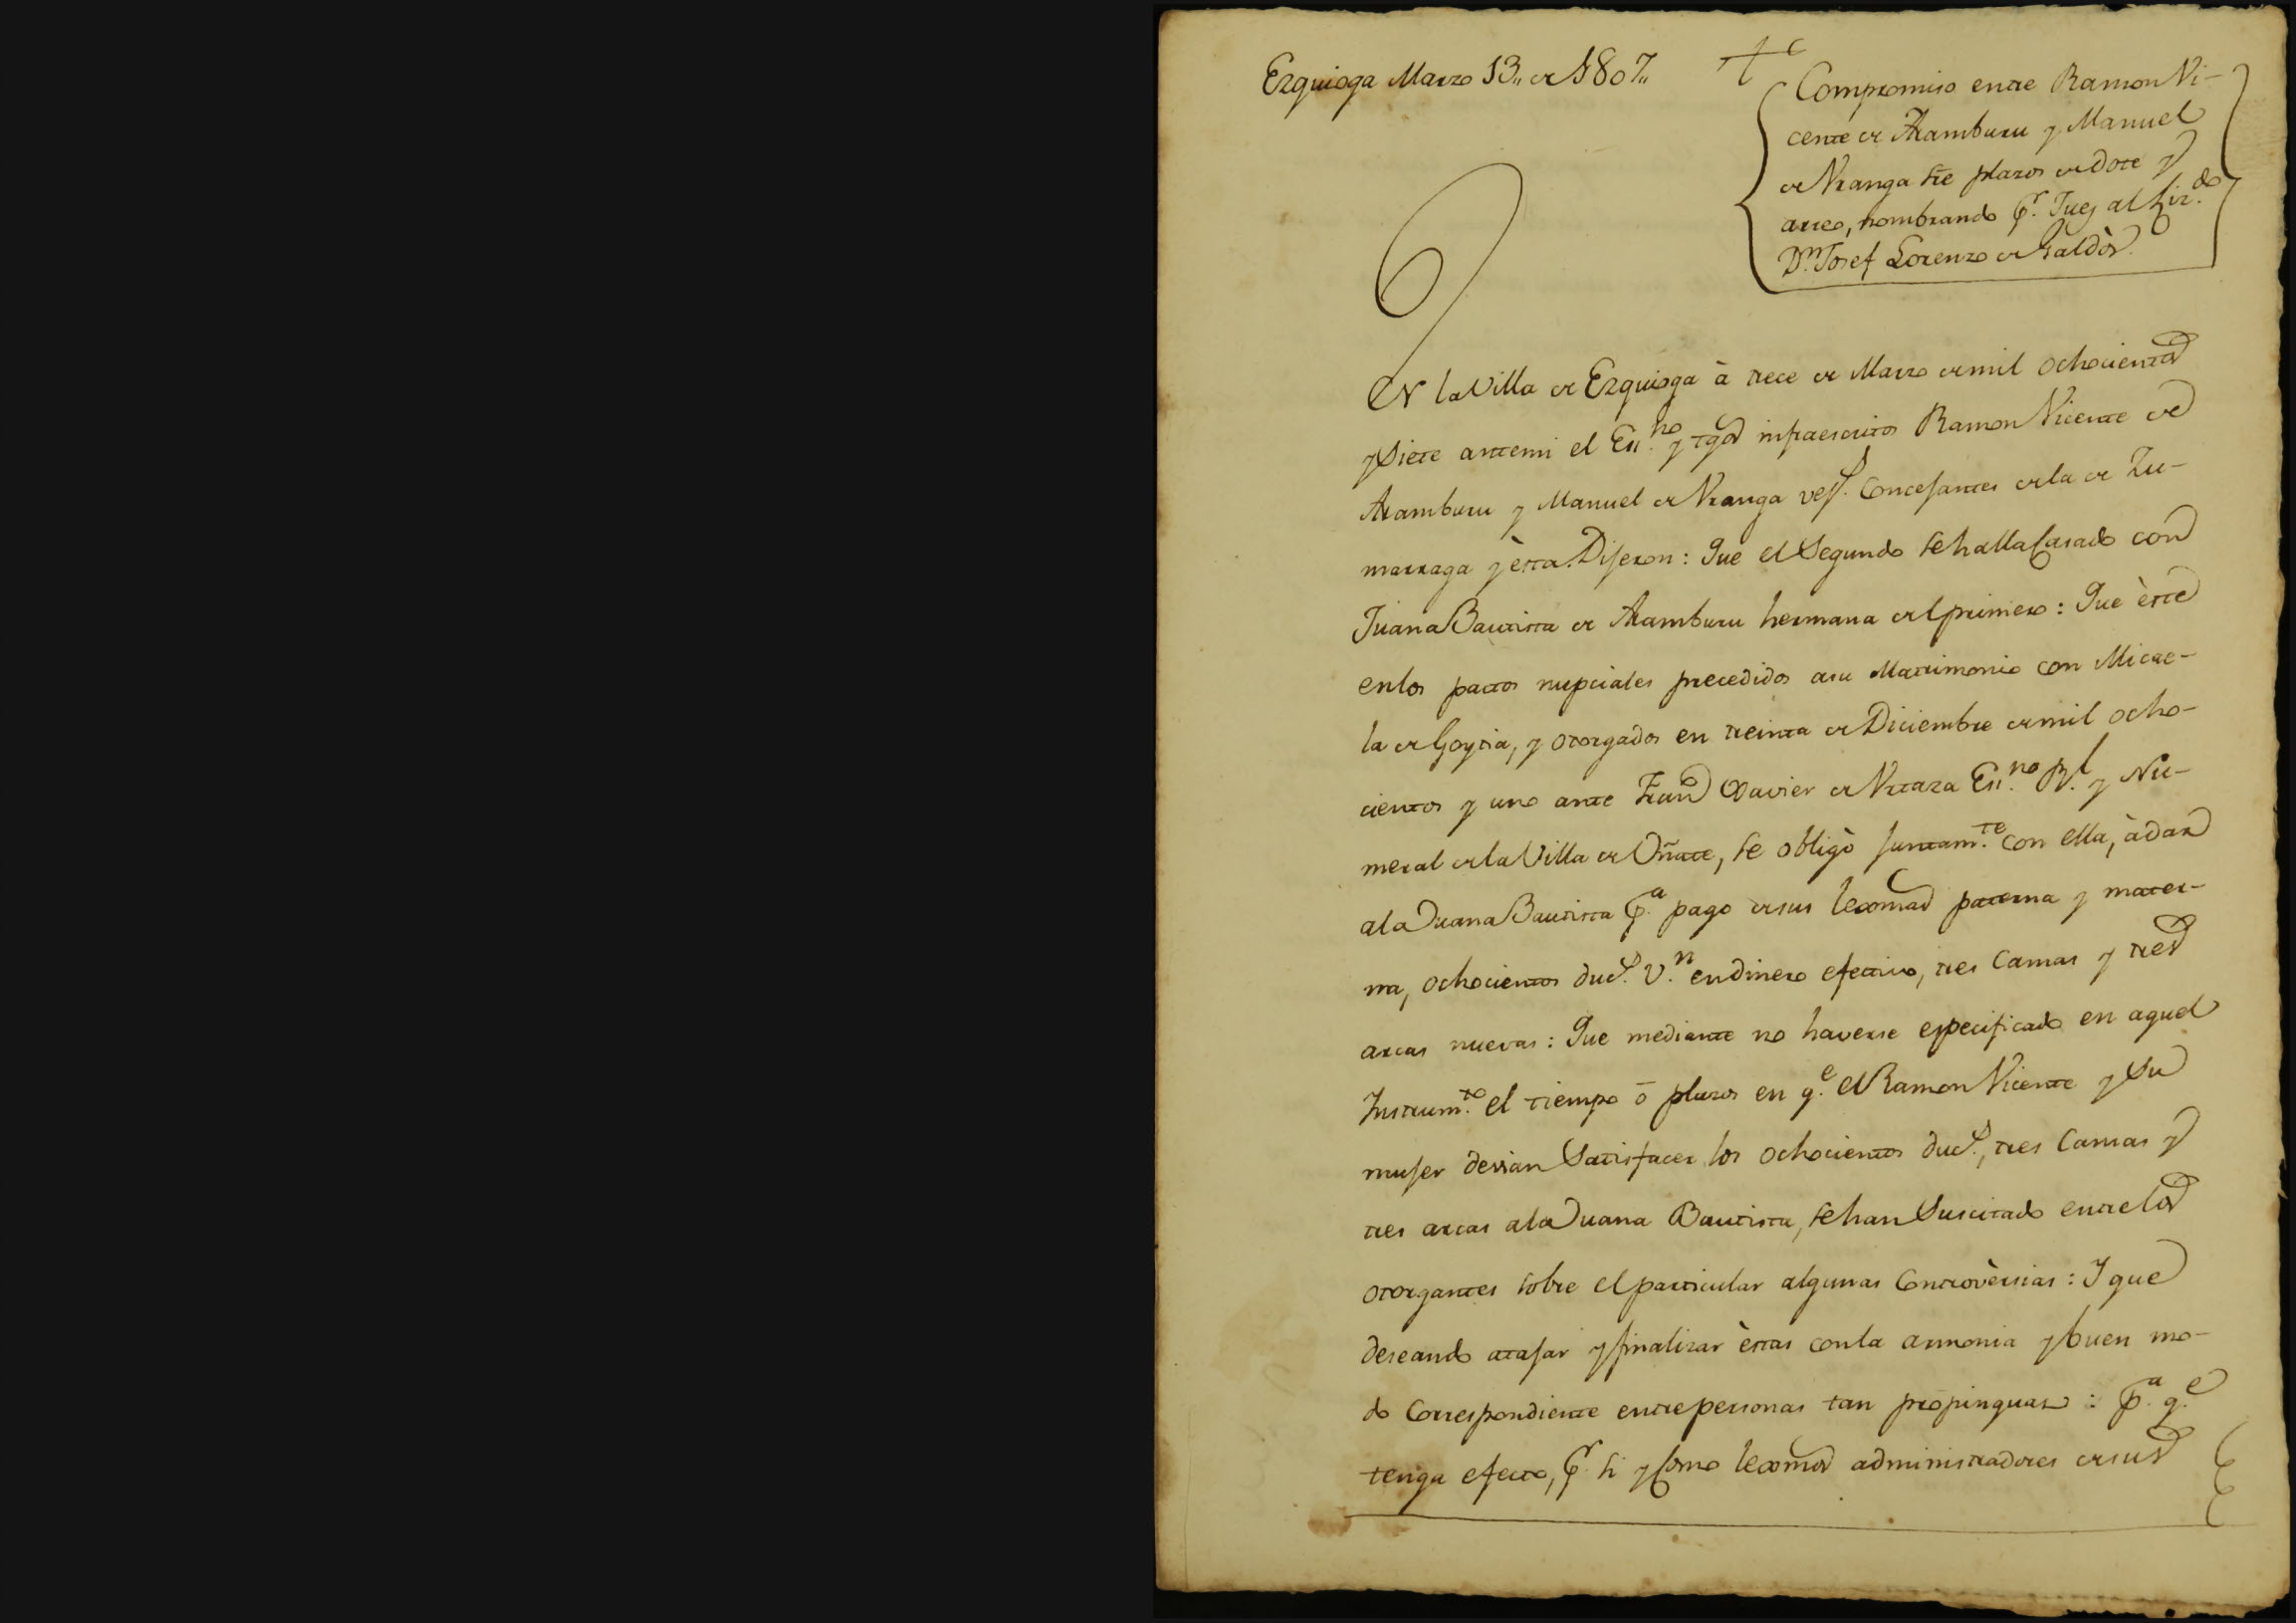 Ezquioga Marzo 13,, de 1807,,
Compromiso entre Ramon Vi-
cente de Aramburu y Manuel
de Uranga sre plazos de dote y
arreo, nombrando pr. Juez al Liz.do
Dn. Josef Lorenzo de Galdòs.
En la Villa de Ezquioga à trece de Marzo de mil ochocientos
y siete antemi el Ess.no y tgos infraescritos Ramon Vicente de
Aramburu y Manuel de Uranga vess. Concejantes de la de Zu-
marraga y èsta Dijeron: Que el Segundo se halla Casado con
Juana Bautista de Aramburu hermana del primero: Que èste
en los pactos nupciales precedidos a su Matrimonio con Micae-
la de Goytia, y otorgados en treinta de Diciembre de mil ocho-
cientos y uno ante Franco Xavier de Urtaza Ess.no Rl. y Nu-
meral de la Villa de Oñate, se obligò juntam.te con ella, à dar
a la Juana Bautista p.a pago de sus lexmas paterna y mater-
na, ochocientos duc.s v.n en dinero efectivo, tres Camas y tres
arcas nuevas: Que mediante no haverse especificado en aquel
Instrum.to el tiempo ò plazos en q.e el Ramon Vicente y su
mujer devian Satisfacer los ochocientos duc.s, tres Camas y
tres arcas a la Juana Bautista, se han Suscitado entre los
otorgantes sobre el particular algunas Controvèrsias: Y que
deseando atajar y finalizar èstas con la armonia y buen mo-
do Correspondiente entre personas tan propinquas: p.a q.e
tenga efecto, pr. si y Como lexmos administradores de sus